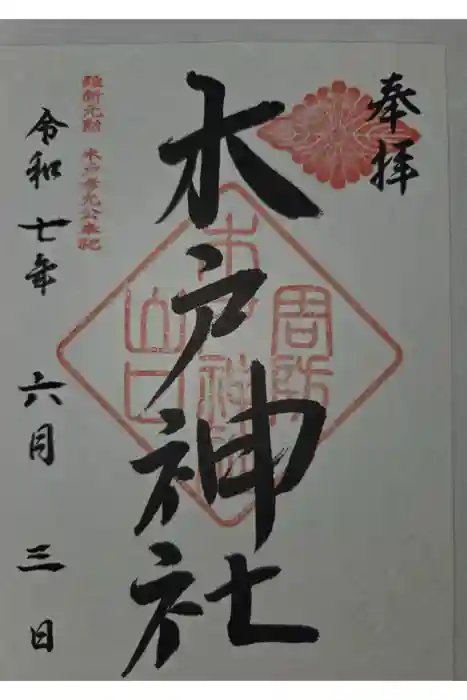 奉拝
周防
木戸神社
木戸神社
山口
維新元勲 木戸孝允公奉祀
令和七年 六月 三日